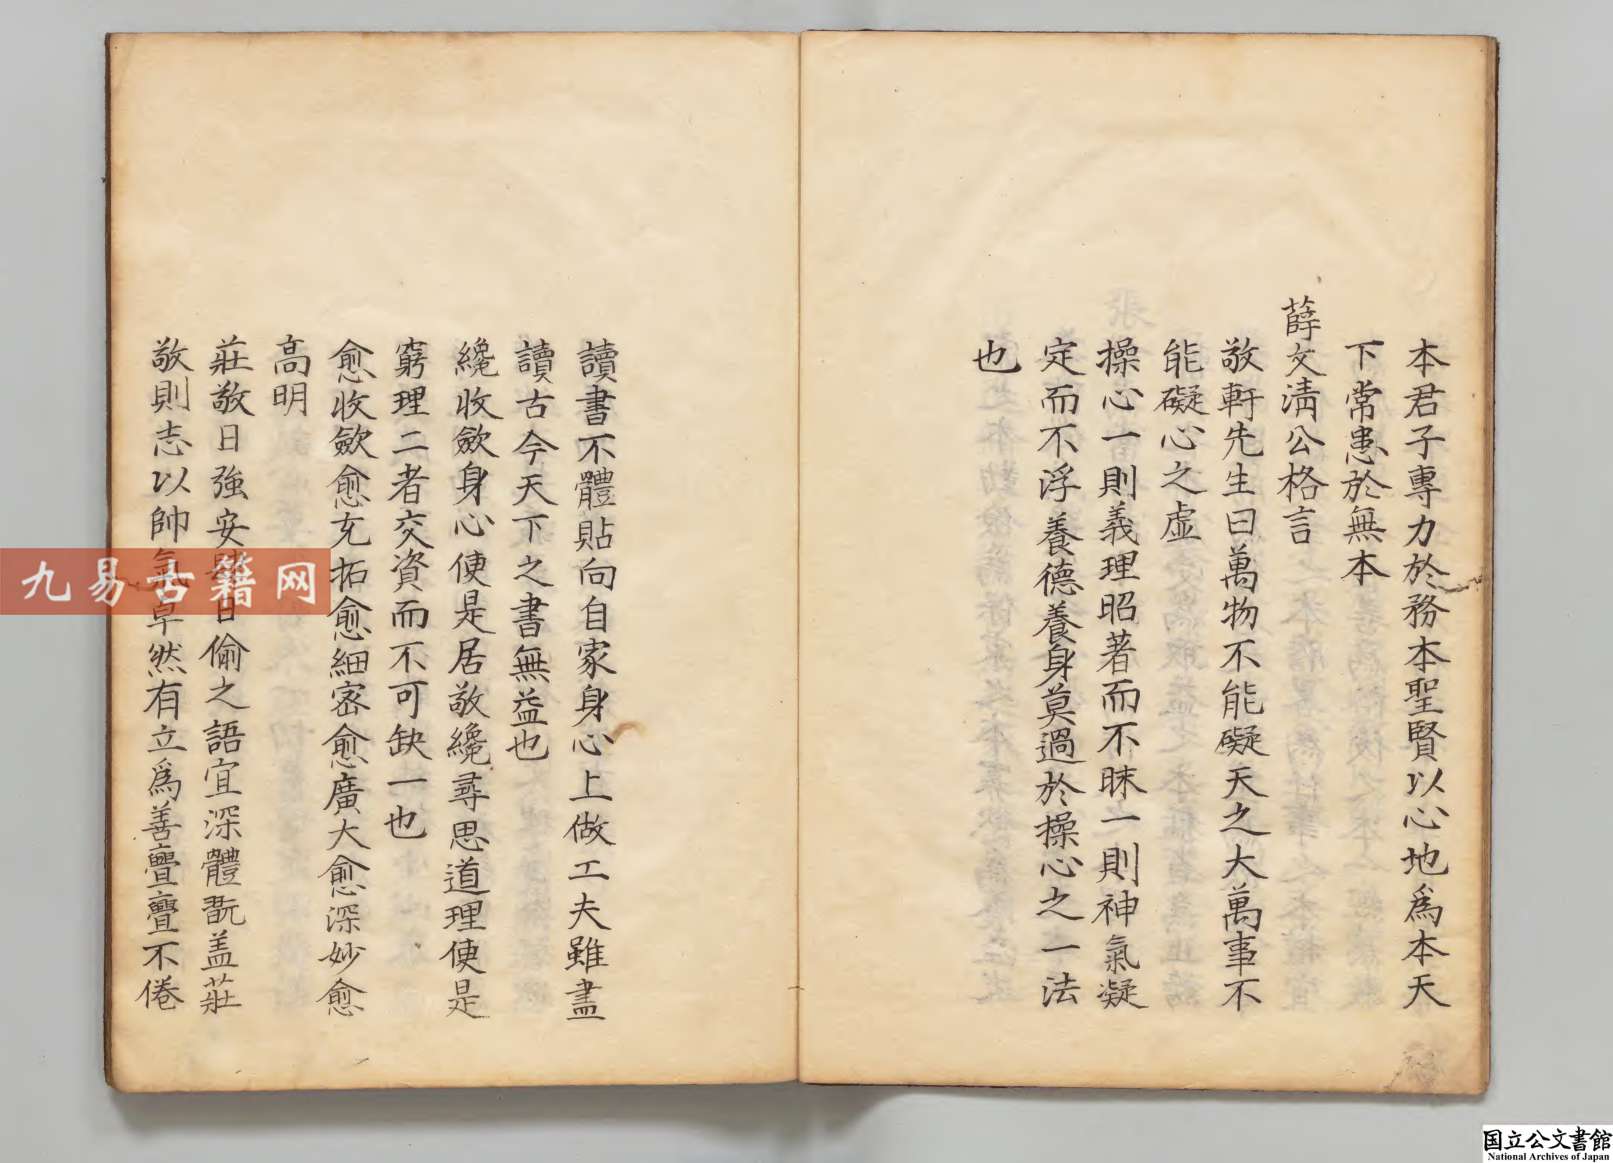 本君子專力於務本聖賢以心地爲本天
下常患於無本
薛文淸公格言
敬軒先生曰萬物不能礙天之大萬事不
能礙心之虛
操心一則義理昭著而不昧一則神氣凝
定而不浮養德養身莫過於操心之一法
也
讀書不體貼向自家身心上做工夫雖盡
讀古今天下之書無益也
纔收歛身心使是居敬纔尋思道理使是
窮理二者交資而不可缺一也
愈收歛愈充拓愈細密愈廣大愈深妙愈
高明
莊敬日強安肆日偷之語宜深體翫盖莊
敬則志以帥氣卓然有立爲善亹亹不倦
九易古籍网
国立公文書館
National Archives of Japan